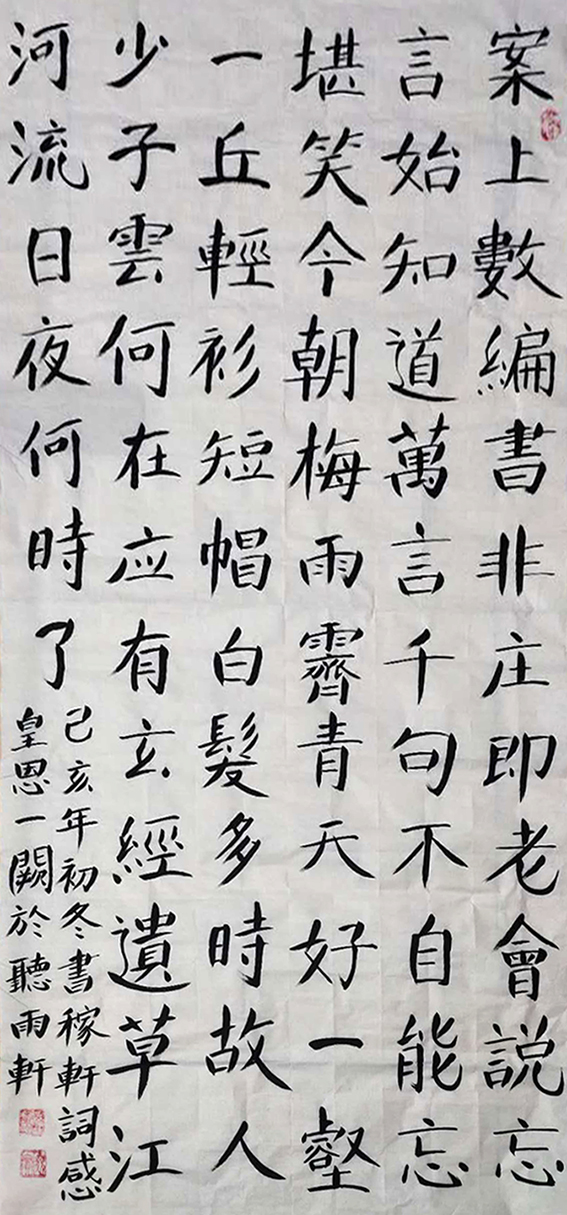 案上數編書非庄即老會説忘
言始知道萬言千句不自能忘
堪笑今朝梅雨霽青天好一壑
一丘輕衫短帽白髮多時故人
少子雲何在应有玄經遺草江
河流日夜何時了
己亥年初冬書稼軒詞感
皇恩一闋於聽雨軒